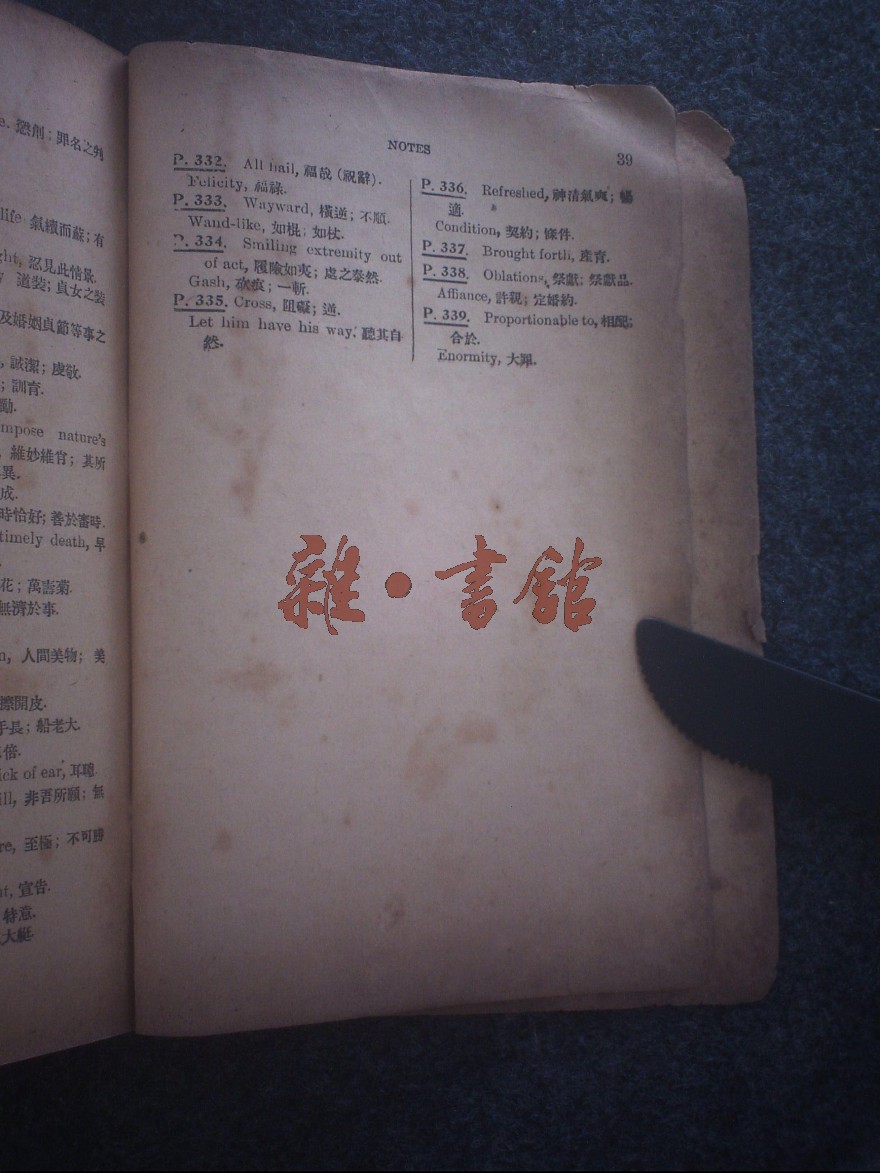 e. 懲創; 罪名之判
life 氣續而蘇; 有
ght, 忍見此情景.
道裝; 貞女之裝
及婚姻貞節等事之
, 誠潔; 虔敬.
; 訓育.
勸.
mpose nature's
, 維妙維肖; 其所
異.
成.
時恰好; 善於審時.
timely death, 早
花; 萬壽菊.
無濟於事.
n, 人間美物; 美
擦開皮.
手長; 船老大.
倍.
ick of ear, 耳聰.
ill, 非吾所願; 無
re, 至極; 不可勝
nt, 宣告.
特意.
大艇.
NOTES
39
P. 332. All hail, 福哉 (祝辭).
Felicity, 福祿.
P. 333. Wayward, 橫逆; 不順.
Wand-like, 如棍; 如杖.
P. 334. Smiling extremity out
of act, 履險如夷; 處之泰然.
Gash, 砍痕; 一斬.
P. 335. Cross, 阻礙; 逆.
Let him have his way, 聽其自
然.
P. 336. Refreshed, 神清氣爽; 暢
適.
Condition, 契約; 條件.
P. 337. Brought forth, 產育.
P. 338. Oblations, 祭獻; 祭獻品.
Affiance, 許親; 定婚約.
P. 339. Proportionable to, 相配;
合於.
Enormity, 大罪.
雜·書館